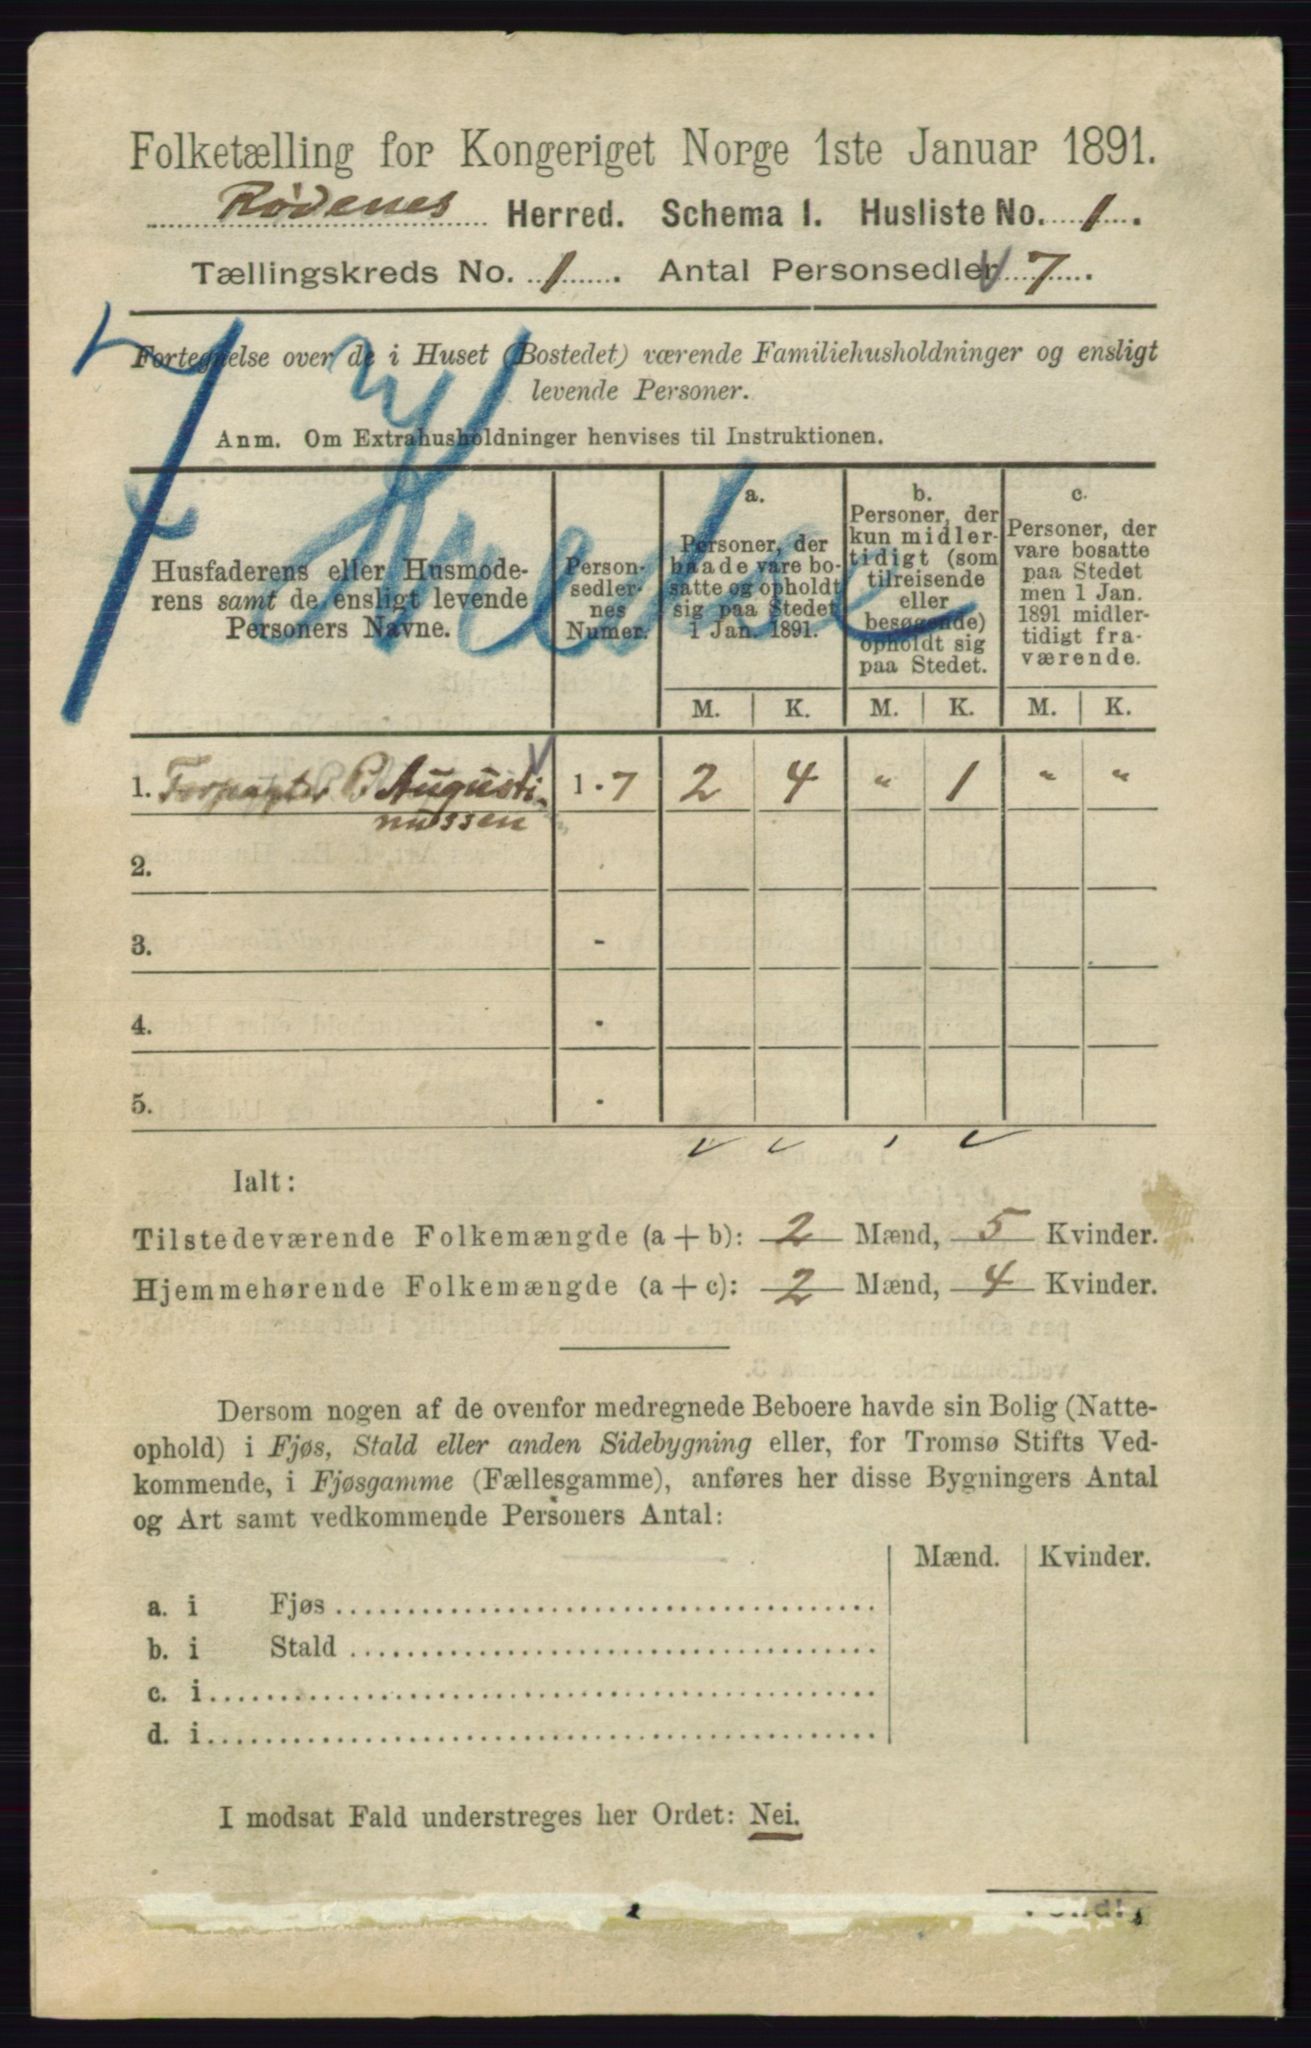 Folketælling for Kongeriget Norge 1ste Januar 1891.
Rødenes Herred. Schema I. Husliste No. 1.
Tællingskreds No. 1. Antal Personsedler 7.
Fortegnelse over de i Huset (Bostedet) værende Familiehusholdninger og ensligt
levende Personer.
Anm. Om Extrahusholdninger henvises til Instruktionen.
7
Husfaderens eller Husmode-
rens samt de ensligt levende
Personers Navne.
Person-
sedler-
nes
Numer.
a.
Personer, der
baade vare bo-
satte og opholdt
sig paa Stedet
1 Jan. 1891.
b.
Personer, der
kun midler-
tidigt (som
tilreisende
eller
besøgende)
opholdt sig
paa Stedet.
c.
Personer, der
vare bosatte
paa Stedet
men 1 Jan.
1891 midler-
tidigt fra-
værende.
M. K. M. K. M. K.
1. Forpagter P. Augusti- 1 - 7 2 4 " 1 " "
nussen
2.
3. -
4.
5.
Ialt:
Tilstedeværende Folkemængde (a + b): 2 Mænd, 5 Kvinder.
Hjemmehørende Folkemængde (a + c): 2 Mænd, 4 Kvinder.
Dersom nogen af de ovenfor medregnede Beboere havde sin Bolig (Natte-
ophold) i Fjøs, Stald eller anden Sidebygning eller, for Tromsø Stifts Ved-
kommende, i Fjøsgamme (Fællesgamme), anføres her disse Bygningers Antal
og Art samt vedkommende Personers Antal:
Mænd. Kvinder.
a. i Fjøs
b. i Stald
c. i
d. i
I modsat Fald understreges her Ordet: Nei.